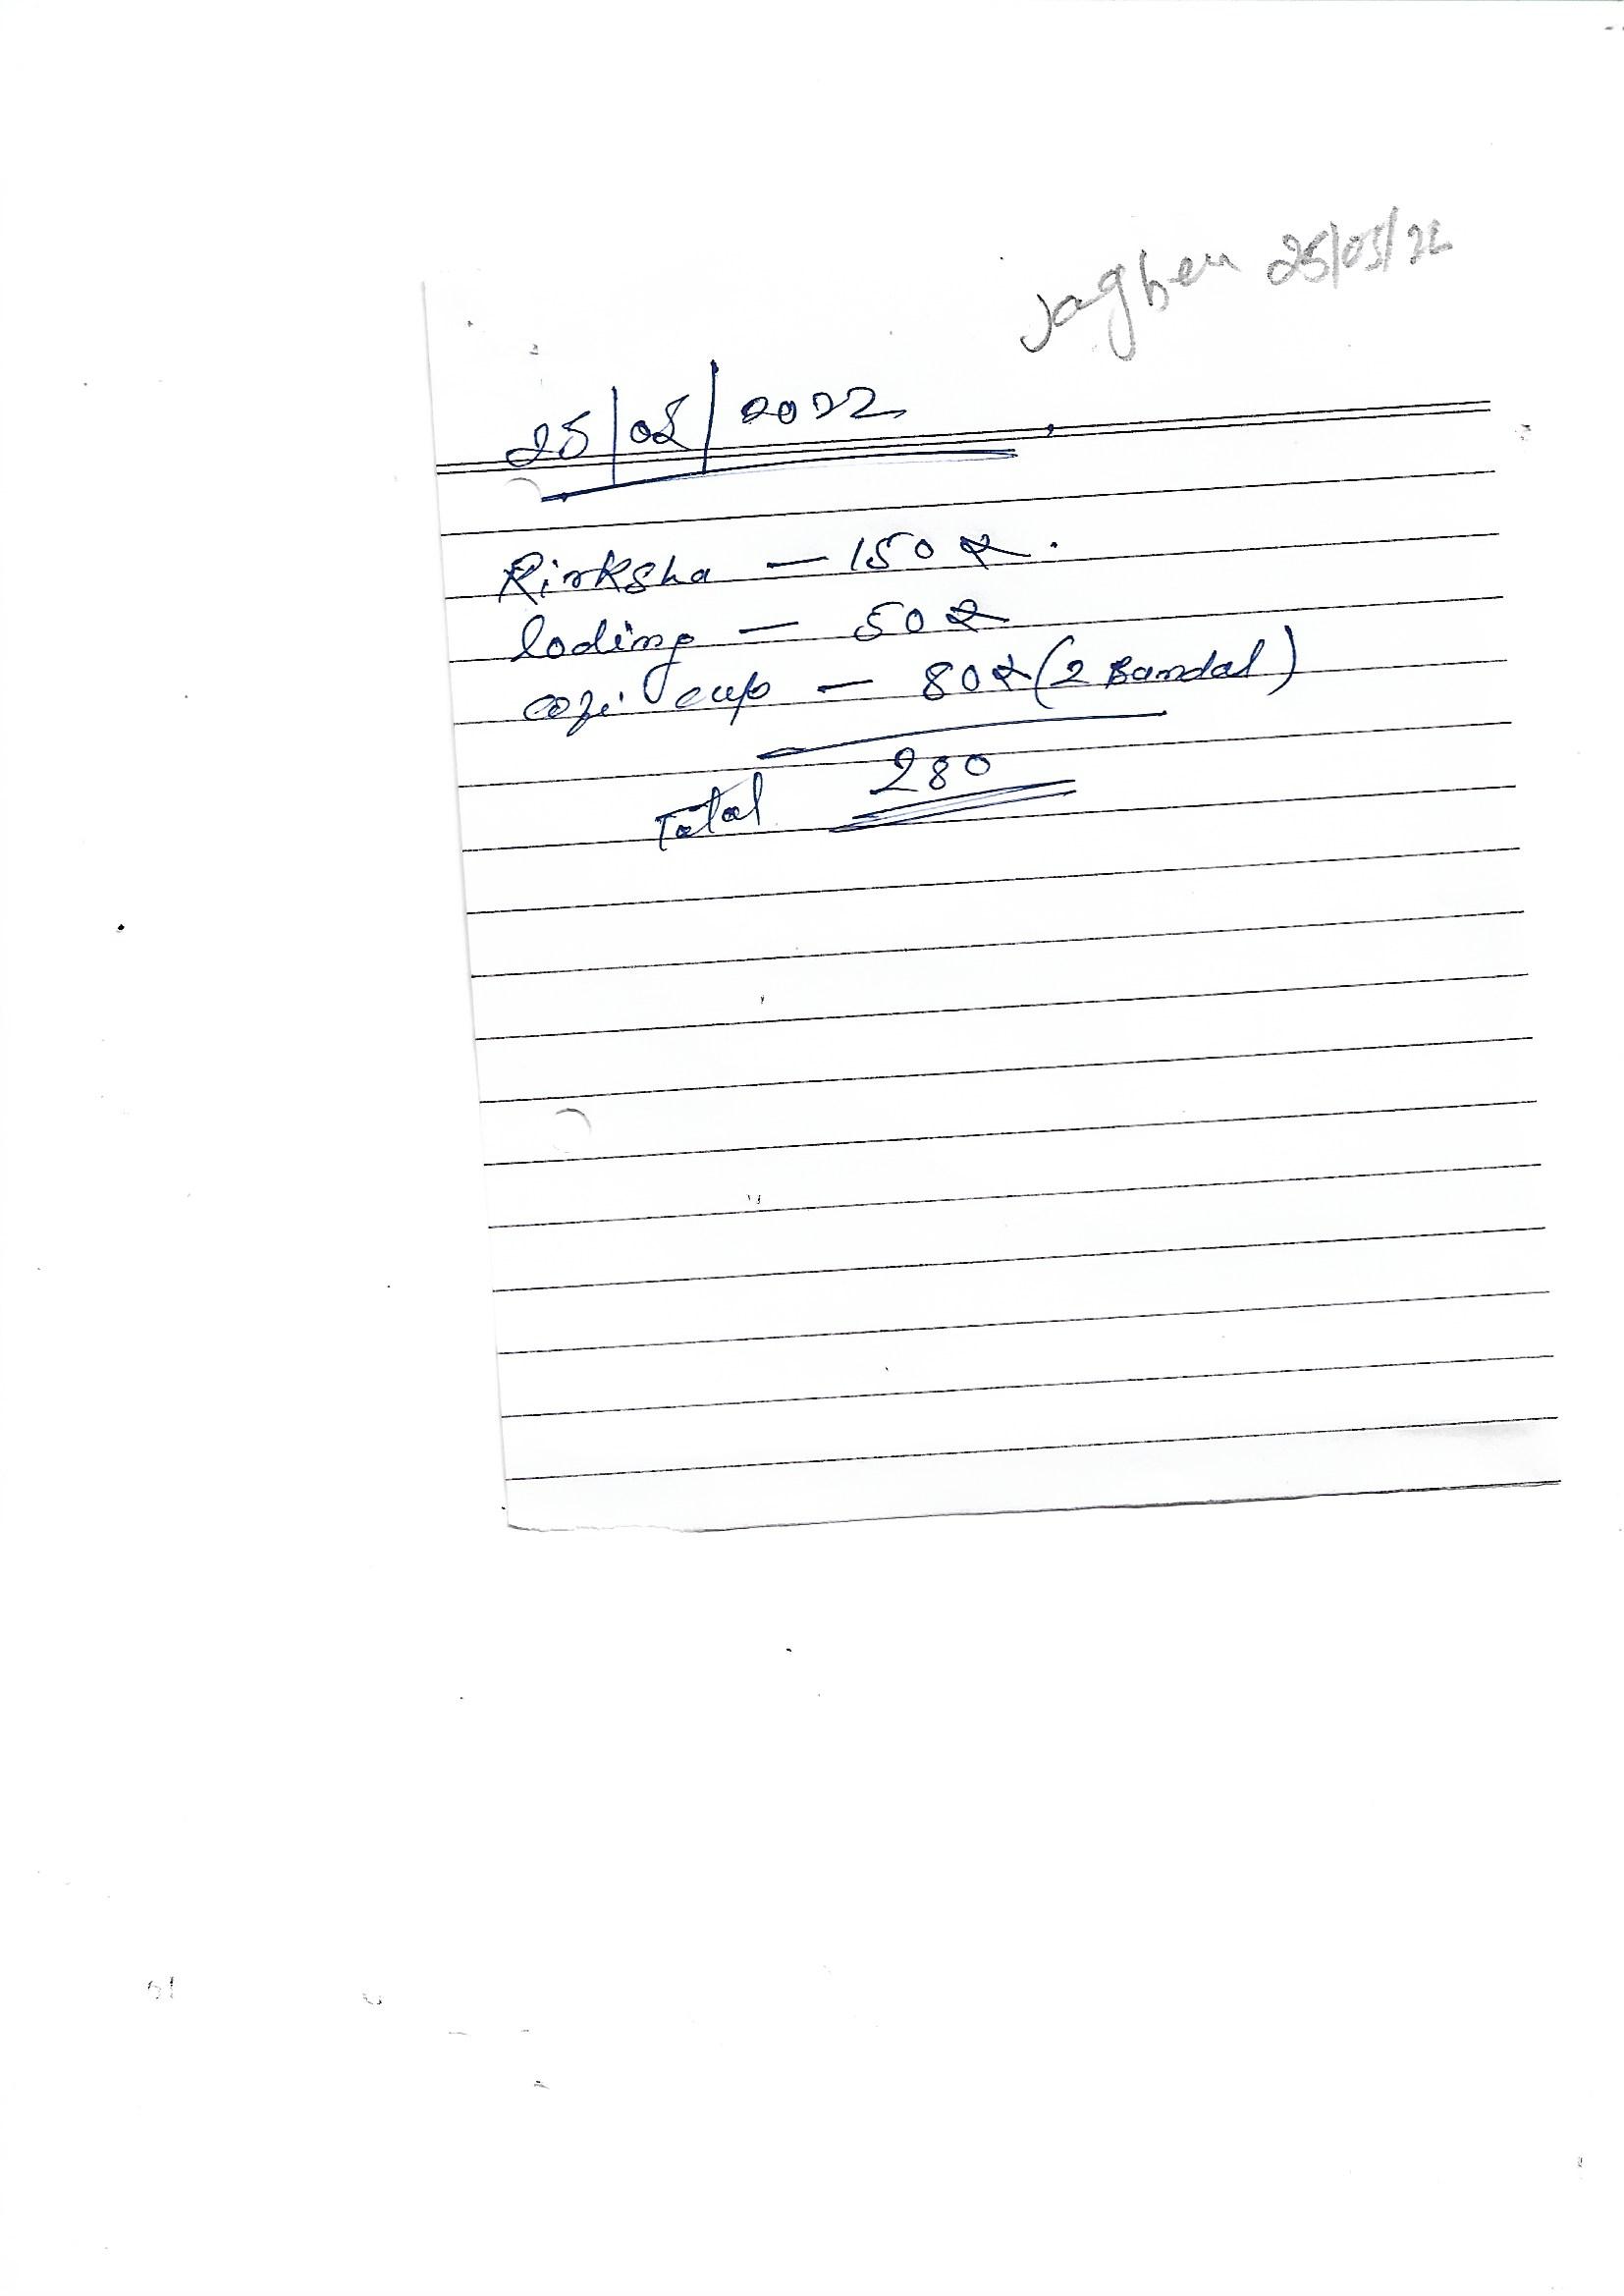 Jagben 25/05/22
25/05/2022
Rirksha — 150 ₹.
loding — 50 ₹
cofi cup — 80 ₹ (2 Bandal)
Total 280